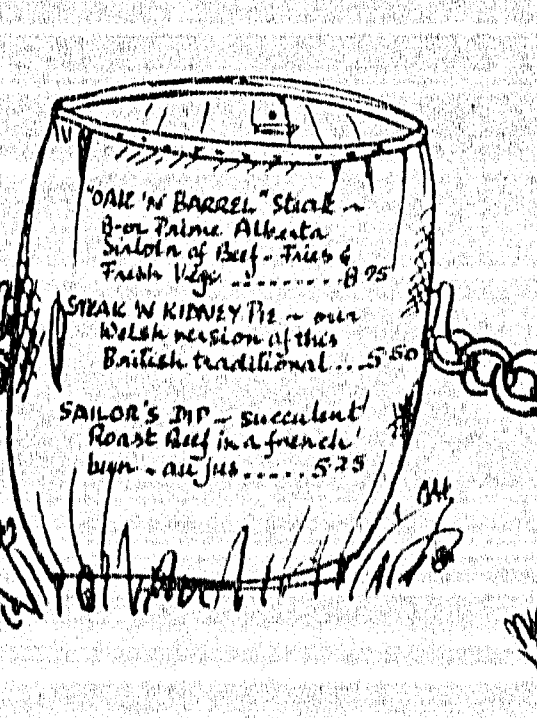 "OAK 'N BARREL" Steak ~
8-oz Prime Alberta
Sirloin of Beef - Fries &
Fresh Vegs ......... 8 95
STEAK 'N KIDNEY PIE ~ our
Welsh version of this
British traditional ... 5 50
SAILOR'S DIP ~ succulent
Roast Beef in a french
bun - au jus ..... 5 25